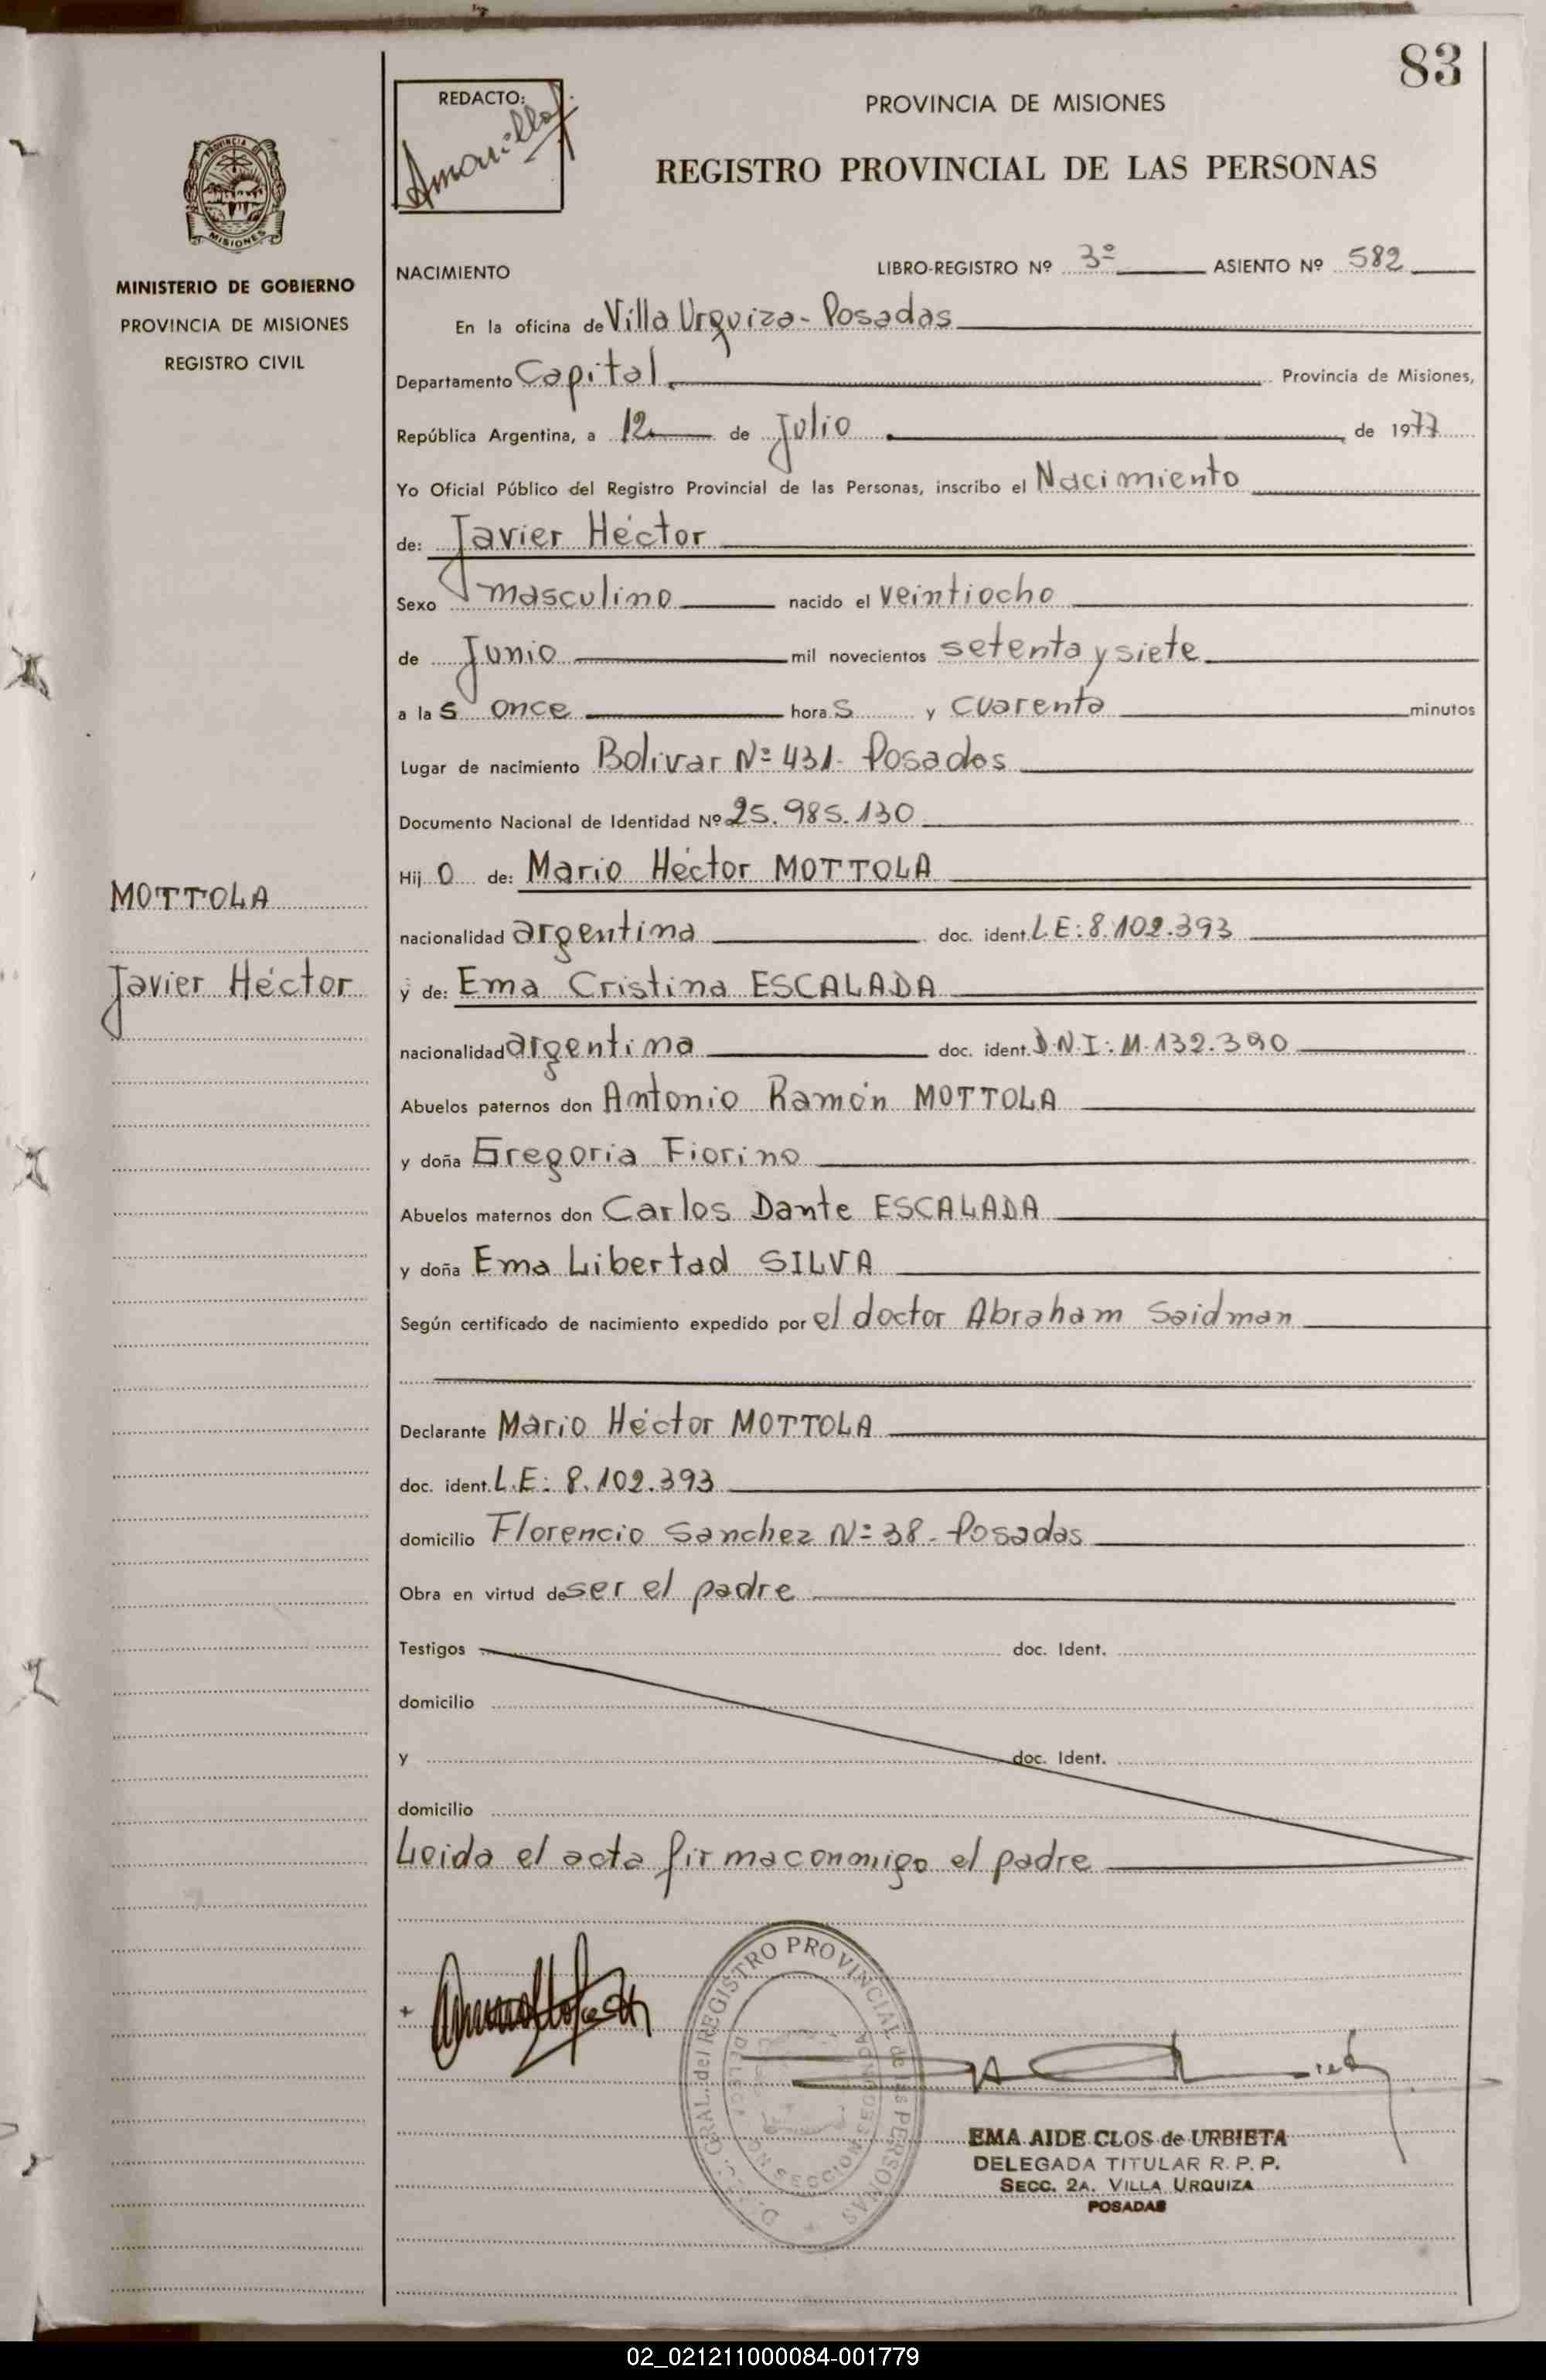 83
REDACTO:
Amarilla
PROVINCIA DE MISIONES
REGISTRO PROVINCIAL DE LAS PERSONAS
PROVINCIA DE
MISIONES
MINISTERIO DE GOBIERNO
PROVINCIA DE MISIONES
REGISTRO CIVIL
NACIMIENTO LIBRO-REGISTRO Nº 3º ASIENTO Nº 582
En la oficina de Villa Urquiza - Posadas
Departamento Capital Provincia de Misiones,
República Argentina, a 12 de Julio de 1977
Yo Oficial Público del Registro Provincial de las Personas, inscribo el Nacimiento
de: Javier Héctor
Sexo masculino nacido el veintiocho
de Junio mil novecientos setenta y siete
a las once horas y cuarenta minutos
Lugar de nacimiento Bolivar Nº 431- Posadas
Documento Nacional de Identidad Nº 25.985.130
Hijo de: Mario Héctor MOTTOLA
MOTTOLA
nacionalidad argentina doc. ident. L E: 8.102.393
Javier Héctor
y de: Ema Cristina ESCALADA
nacionalidad argentina doc. ident. D.N.I: 11.132.390
Abuelos paternos don Antonio Ramón MOTTOLA
y doña Gregoria Fiorino
Abuelos maternos don Carlos Dante ESCALADA
y doña Ema Libertad SILVA
Según certificado de nacimiento expedido por el doctor Abraham Saidman
Declarante Mario Héctor MOTTOLA
doc. ident. L.E: 8.102.393
domicilio Florencio Sanchez Nº 38- Posadas
Obra en virtud de ser el padre
Testigos doc. Ident.
domicilio
y doc. Ident.
domicilio
Leida el acta firma conmigo el padre
GRAL. del REGISTRO PROVINCIAL de las PERSONAS
SECCION SEGUNDA
EMA AIDE CLOS de URBIETA
DELEGADA TITULAR R. P. P.
SECC. 2A. VILLA URQUIZA
POSADAS
02_021211000084-001779